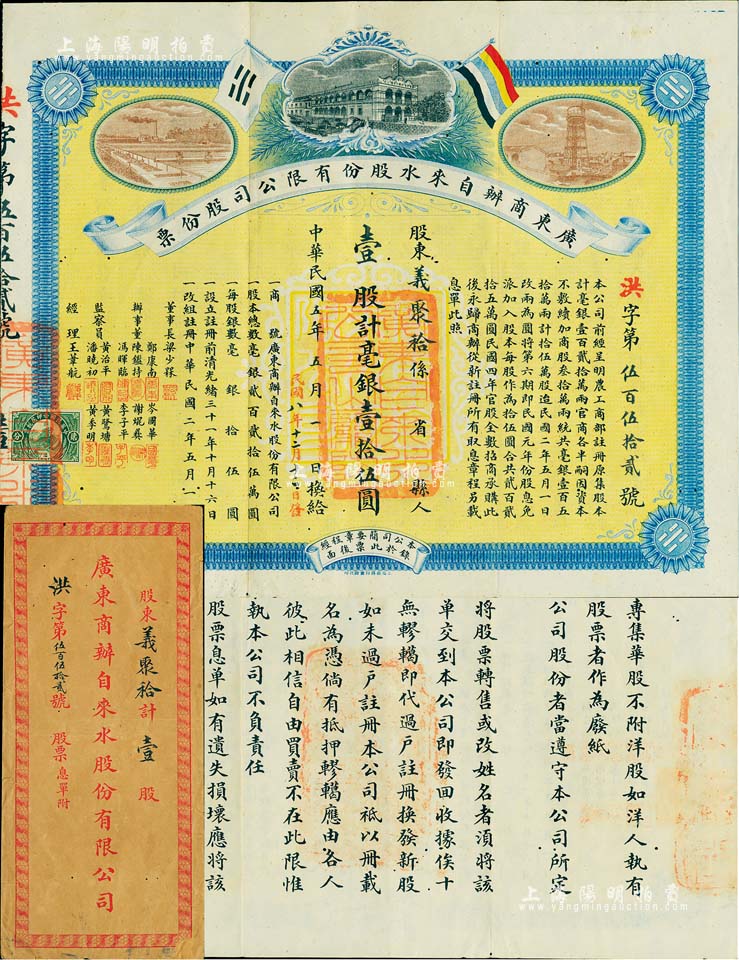 上海陽明拍賣
www.yangmingauction.com
廣東商辦自來水股份有限公司股份票
洪字第伍百伍拾貳號
本公司前經呈明農工商部註冊原集股本
計毫銀壹百貳拾萬兩官商各半嗣因資本
不敷續加商股叁拾萬兩統共毫銀壹百五
拾萬兩計拾伍萬股迨民國二年五月一日
改兩為圓將第六期即民國元年份股息免
派加入股本每股作為拾伍圓合共貳百貳
拾五萬圓民國四年官股全數招商承購此
後永歸商辦從新註冊所有取息章程另載
息單此照
股東義聚拾係 省 縣人
壹股計毫銀壹拾伍圓
中華民國五年五月一日換給
民國八年十二月
一商號廣東商辦自來水股份有限公司
股本總數毫銀貳百貳拾伍萬圓
一每股銀數毫銀拾伍圓
一設立註冊前清光緒三十一年十月十六日
一改組註冊中華民國二年五月一
董事長梁少稼
辦事董陳鑑持
鄭康南
馮暉貽
岑國華
謝焜彝
李子平
監察員
黃治平
潘曉初
黃鷺塘
黃季明
經理王葦航
洪字第伍百伍拾貳號
本公司簡要章程經
錄於此票後面
上海陽明拍賣
www.yangmingauction.com
股東義聚拾計壹股
廣東商辦自來水股份有限公司
洪字第伍百伍拾貳號 股票息單附
專集華股不附洋股如洋人執有
股票者作為廢紙
公司股份者當遵守本公司所定
將股票轉售或改姓名者須將該
單交到本公司即發回收據俟十
無轇轕即代過戶註冊換發新股
如未過戶註冊本公司祗以冊載
名為憑倘有抵押轇轕應由各人
彼此相信自由買賣不在此限惟
執本公司不負責任
股票息單如有遺失損壞應將該
上海陽明拍賣
www.yangmingauction.com